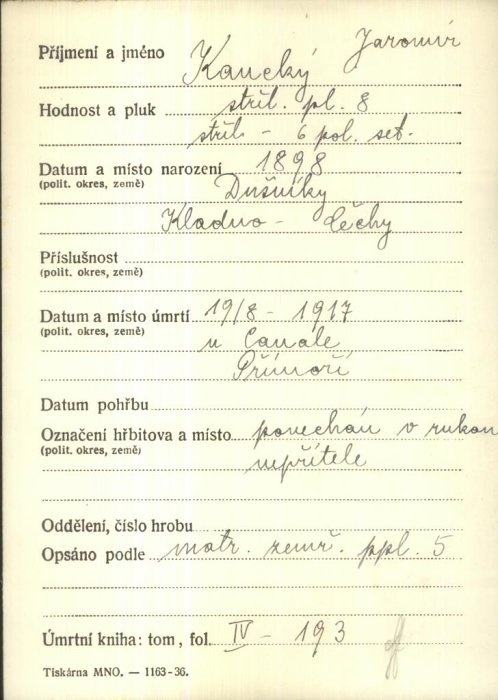 Příjmení a jméno Kaucký Jaromír
Hodnost a pluk stříl. pl. 8
stříl - 6 pol. set.
Datum a místo narození 1898
(polit. okres, země) Dušníky
Kladno - Čechy
Příslušnost
(polit. okres, země)
Datum a místo úmrtí 19/8 - 1917
(polit. okres, země) u Canale
Přímoří
Datum pohřbu
Označení hřbitova a místo ponechán v rukou
(polit. okres, země) nepřítele
Oddělení, číslo hrobu
Opsáno podle matr. zemř. ppl. 5
Úmrtní kniha: tom, fol. IV - 193
Tiskárna MNO. — 1163-36.